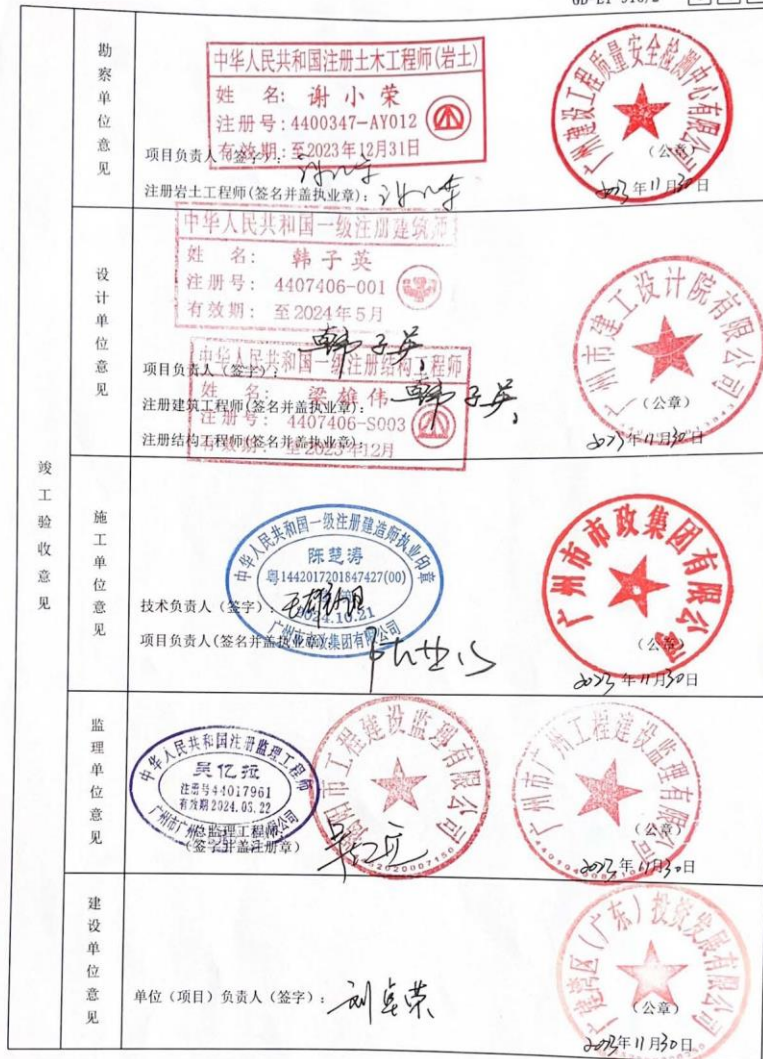 竣工验收意见
勘察单位意见
中华人民共和国注册土木工程师(岩土)
姓 名: 谢小荣
注册号: 4400347-AY012
有效期: 至2023年12月31日
项目负责人（签字）:
注册岩土工程师(签名并盖执业章):
广州建设工程质量安全检测中心有限公司
（公章）
2023年11月30日
设计单位意见
中华人民共和国一级注册建筑师
姓 名: 韩子英
注册号: 4407406-001
有效期: 至2024年5月
项目负责人（签字）: 韩子英
中华人民共和国一级注册结构工程师
姓 名: 梁雄伟
注册号: 4407406-S003
有效期: 至2023年12月
注册建筑工程师(签名并盖执业章): 韩子英
注册结构工程师(签名并盖执业章):
广州市建工设计院有限公司
（公章）
2023年11月30日
施工单位意见
中华人民共和国一级注册建造师执业印章
陈楚涛
粤1442017201847427(00)
2024.10.21
广州市市政集团有限公司
技术负责人（签字）:
项目负责人(签名并盖执业章):
广州市市政集团有限公司
（公章）
2023年11月30日
监理单位意见
中华人民共和国注册监理工程师
吴亿
注册号44017961
有效期2024.03.22
总监理工程师
(签字并盖注册章)
市工程建设监理有限公司
广州市广州工程建设监理有限公司
（公章）
2023年11月30日
建设单位意见
单位（项目）负责人（签字）:
广建湾区（广东）投资发展有限公司
（公章）
2023年11月30日